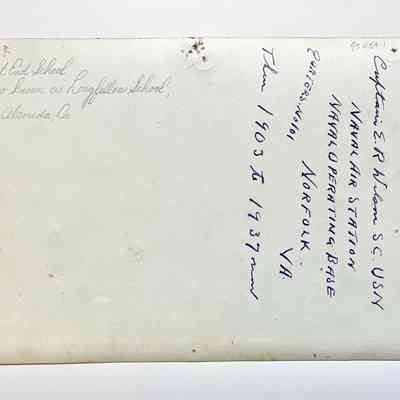 t End School
o known as Longfellow School,
Alameda, Ca
Captain E R Wilson S.C. USN
NAVAL AIR STATION
NAVAL OPERATING BASE
NORFOLK. VA
Then 1903 to 1937 now